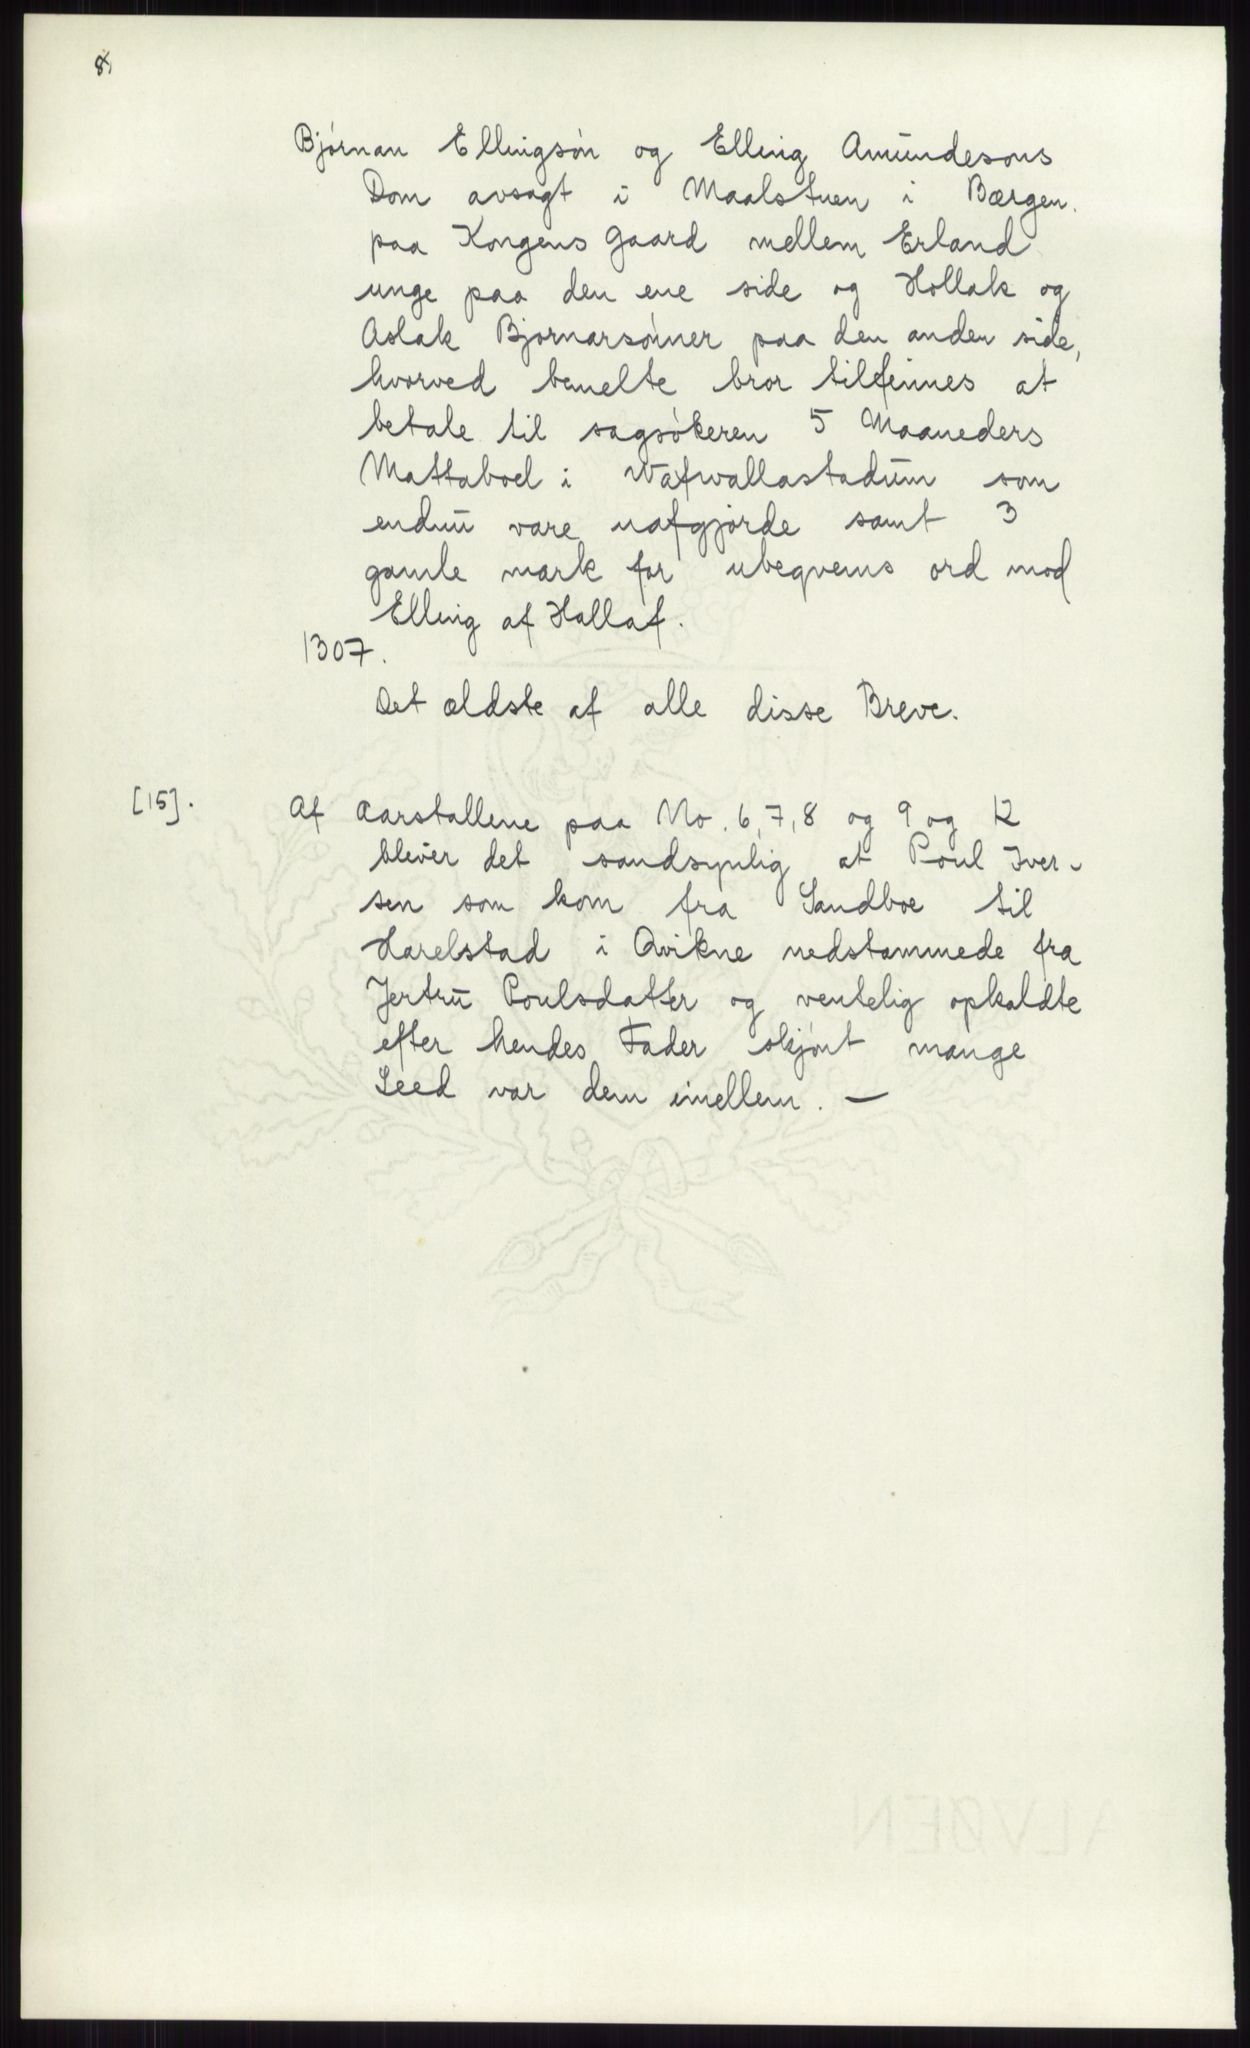 8)
Bjørnan Ellingsøn og Elling Amundesons
Dom avsagt i Maalstuen i Bærgen.
paa Kongens Gaard mellem Erland
unge paa den ene side og Hollak og
Aslak Bjornarsønner paa den anden side,
hvorved bemelte bror tilfinnes at
betale til sagsøkeren 5 Maaneders
Mattaboel i Wafwallastadum som
endnu vare uafgjorde samt 3
gamle mark for ubeqvems ord mod
Elling af Hallaf.
1307.
Det ældste af alle disse Breve.
[15]. Af Aarstallene paa No. 6, 7, 8 og 9 og 12
blever det sandsynlig at Poul Iver-
sen som kom fra Sandboe til
Harelstad i Qvikne nedstammede fra
Jertru Poulsdatter og ventelig opkaldte
efter hendes Fader skjønt mange
Leed var dem imellem. —
ALVØEN